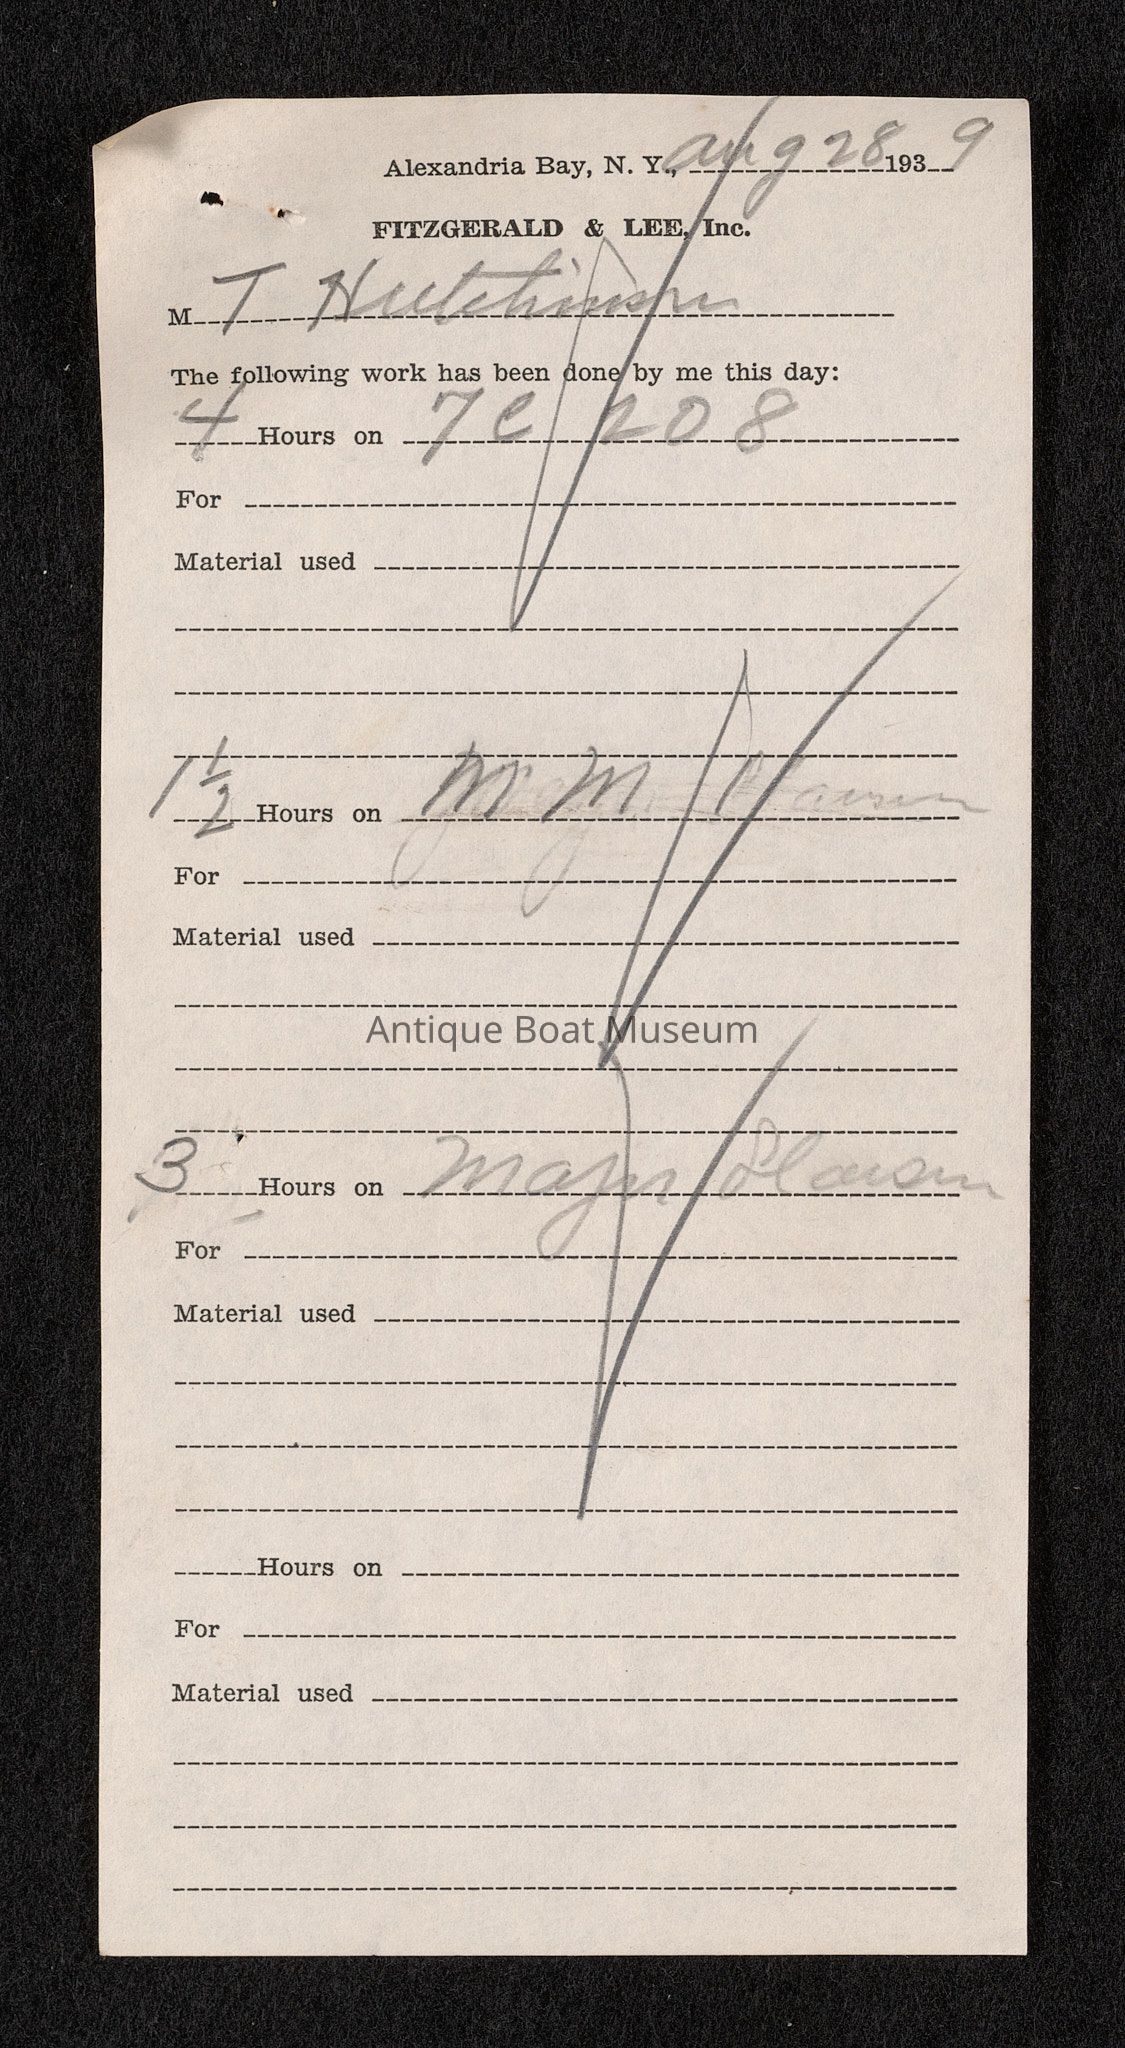 Alexandria Bay, N. Y., Aug 28 1939
FITZGERALD & LEE, Inc.
M T Hutchinson
The following work has been done by me this day:
4 Hours on 7C 208
For
Material used
1 1/2 Hours on Mr M
For
Material used
Antique Boat Museum
3 Hours on Major
For
Material used
Hours on
For
Material used